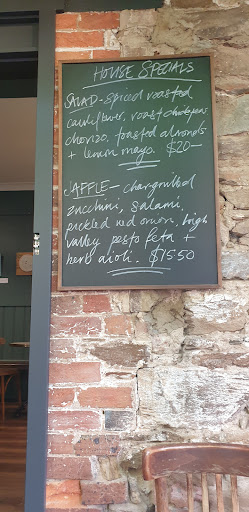 HOUSE SPECIALS
SALAD - Spiced roasted
cauliflower, roast chickpeas,
chorizo, toasted almonds
+ lemon mayo. $20-
JAFFLE - chargrilled
zucchini, salami,
pickled red onion, high
valley pesto feta +
herb aioli. $15.50